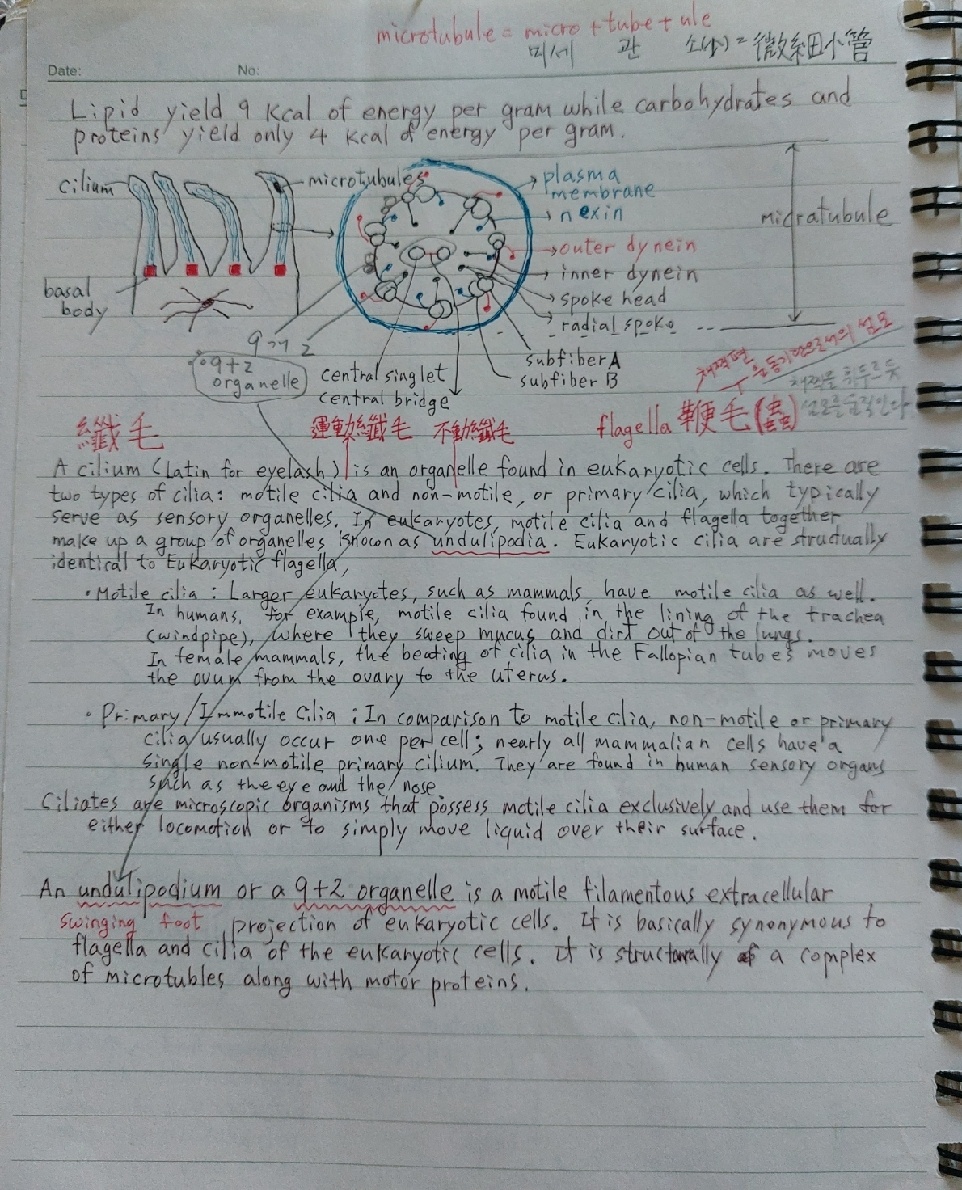 microtubule = micro + tube + ule
미세 관 소(小) = 微細小管
Date: No:
Lipid yield 9 Kcal of energy per gram while carbohydrates and
proteins yield only 4 Kcal of energy per gram.
cilium
microtubules
plasma
membrane
nexin
outer dynein
inner dynein
spoke head
radial spoke
micratubule
basal
body
9+2
organelle
central singlet
central bridge
subfiber A
subfiber B
채찍편
운동기관으로서의 섬모
채찍을 휘두르듯
섬모를 움직인다
纖毛
運動纖毛 不動纖毛
flagella 鞭毛(蟲)
A cilium (Latin for eyelash) is an organelle found in eukaryotic cells. There are
two types of cilia: motile cilia and non-motile, or primary cilia, which typically
serve as sensory organelles. In eukaryotes, motile cilia and flagella together
make up a group of organelles known as undulipodia. Eukaryotic cilia are strudually
identical to Eukaryotic flagella,
• Motile cilia : Larger eukaryotes, such as mammals, have motile cilia as well.
In humans, for example, motile cilia found in the lining of the trachea
(windpipe), where they sweep mucus and dirt out of the lungs.
In female mammals, the beating of cilia in the Fallopian tubes moves
the ovum from the ovary to the uterus.
• Primary/Immotile Cilia : In comparison to motile cilia, non-motile or primary
cilia usually occur one per cell; nearly all mammalian cells have a
single non-motile primary cilium. They are found in human sensory organs
such as the eye and the nose
Ciliates are microscopic organisms that possess motile cilia exclusively and use them for
either locomotion or to simply move liquid over their surface.
An undulipodium or a 9+2 organelle is a motile filamentous extracellular
swinging foot projection of eukaryotic cells. It is basically synonymous to
flagella and cilia of the eukaryotic cells. It is structurally a complex
of microtubles along with motor proteins.